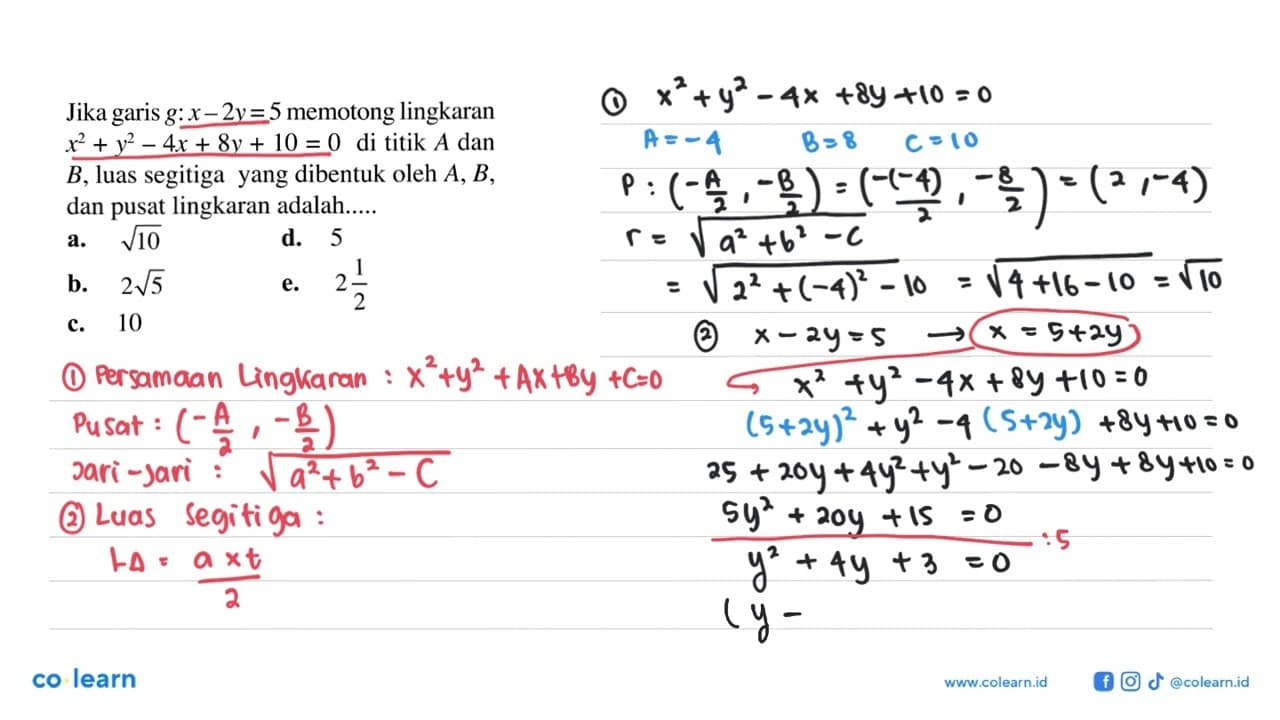 Jika garis g: x – 2y = 5 memotong lingkaran
x² + y² – 4x + 8y + 10 = 0 di titik A dan
B, luas segitiga yang dibentuk oleh A, B,
dan pusat lingkaran adalah.....
a. √10 d. 5
b. 2√5 e. 2 1/2
c. 10
① Persamaan Lingkaran : x²+y² +Ax+By +C=0
Pusat : (-A/2 , -B/2)
Jari-Jari : √(a²+b²-C)
② Luas Segitiga :
L∆ = (a x t)/2
① x² + y² - 4x + 8y + 10 = 0
A = -4 B = 8 C = 10
P : (-A/2 , -B/2) = (-(-4)/2 , -8/2) = (2 , -4)
r = √(a² + b² - C)
= √(2² + (-4)² - 10) = √(4 + 16 - 10) = √10
② x - 2y = 5 → x = 5+2y
x² + y² - 4x + 8y + 10 = 0
(5+2y)² + y² - 4 (5+2y) + 8y + 10 = 0
25 + 20y + 4y² + y² - 20 - 8y + 8y + 10 = 0
5y² + 20y + 15 = 0 : 5
y² + 4y + 3 = 0
( y -
co learn
www.colearn.id @colearn.id